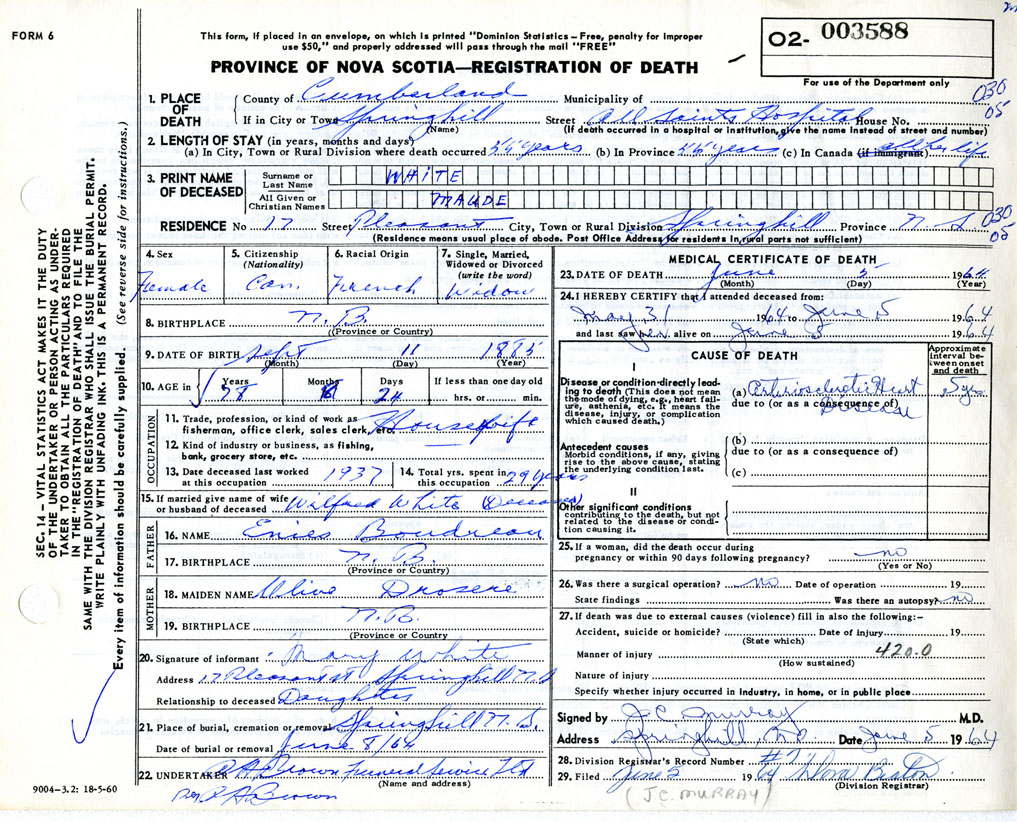 FORM 6
This form, if placed in an envelope, on which is printed "Dominion Statistics – Free, penalty for improper
use $50," and properly addressed will pass through the mail "FREE"
PROVINCE OF NOVA SCOTIA—REGISTRATION OF DEATH
O2- 003588
For use of the Department only
030
05
SEC. 14 – VITAL STATISTICS ACT MAKES IT THE DUTY
OF THE UNDERTAKER OR PERSON ACTING AS UNDER-
TAKER TO OBTAIN ALL THE PARTICULARS REQUIRED
IN THE "REGISTRATION OF DEATH" AND TO FILE THE
SAME WITH THE DIVISION REGISTRAR WHO SHALL ISSUE THE BURIAL PERMIT.
WRITE PLAINLY WITH UNFADING INK. THIS IS A PERMANENT RECORD.
Every item of information should be carefully supplied. (See reverse side for instructions.)
1. PLACE OF DEATH
County of Cumberland Municipality of
If in City or Town Springhill Street All Saints Hospital House No.
(Name) (If death occurred in a hospital or institution, give the name instead of street and number)
2. LENGTH OF STAY (in years, months and days)
(a) In City, Town or Rural Division where death occurred years (b) In Province years (c) In Canada (if immigrant) all her life
3. PRINT NAME OF DECEASED
Surname or Last Name WHITE
All Given or Christian Names MAUDE
RESIDENCE No 17 Street Pleasant City, Town or Rural Division Springhill Province N. S. 030
05
(Residence means usual place of abode. Post Office Address for residents in rural parts not sufficient)
4. Sex
Female
5. Citizenship (Nationality)
Can.
6. Racial Origin
French
7. Single, Married, Widowed or Divorced (write the word)
Widow
8. BIRTHPLACE N. B.
(Province or Country)
9. DATE OF BIRTH Sept 11 1885
(Month) (Day) (Year)
10. AGE in Years Months Days If less than one day old
78 8 24 hrs. or min.
OCCUPATION
11. Trade, profession, or kind of work as
fisherman, office clerk, sales clerk, etc. Housewife
12. Kind of industry or business, as fishing,
bank, grocery store, etc.
13. Date deceased last worked
at this occupation 1937
14. Total yrs. spent in
this occupation 29 years
15. If married give name of wife
or husband of deceased Wilfred White (Deceased)
FATHER
16. NAME Boudreau
17. BIRTHPLACE N. B.
(Province or Country)
MOTHER
18. MAIDEN NAME Olive
19. BIRTHPLACE N. B.
(Province or Country
20. Signature of informant Mary White
Address 17 Pleasant St Springhill N.S
Relationship to deceased Daughter
21. Place of burial, cremation or removal Springhill N. S.
Date of burial or removal June 8/64
22. UNDERTAKER Brown Funeral Service Ltd
(Name and address)
Per A Brown
9004-3.2: 18-5-60
MEDICAL CERTIFICATE OF DEATH
23. DATE OF DEATH June 5 1964
(Month) (Day) (Year)
24. I HEREBY CERTIFY that I attended deceased from:
May 31 1964 to June 5 1964
and last saw her alive on June 5 1964
CAUSE OF DEATH
Approximate interval between onset and death
I
Disease or condition directly lead-
ing to death (This does not mean
the mode of dying, e.g., heart fail-
ure, asthenia, etc. It means the
disease, injury, or complication
which caused death.)
(a) Arteriosclerotic Heart
due to (or as a consequence of)
Disease
5 yrs
Antecedent causes
Morbid conditions, if any, giving
rise to the above cause, stating
the underlying condition last.
(b)
due to (or as a consequence of)
(c)
II
Other significant conditions
contributing to the death, but not
related to the disease or condi-
tion causing it.
25. If a woman, did the death occur during
pregnancy or within 90 days following pregnancy? no
(Yes or No)
26. Was there a surgical operation? no Date of operation 19
State findings Was there an autopsy? no
27. If death was due to external causes (violence) fill in also the following:–
Accident, suicide or homicide? Date of injury 19
(State which)
Manner of injury 420.0
(How sustained)
Nature of injury
Specify whether injury occurred in industry, in home, or in public place
Signed by J.C. Murray M.D.
Address Springhill, Date June 5 1964
28. Division Registrar's Record Number #7
29. Filed June 5 1964 Beaton
(Division Registrar)
(J.C. MURRAY)